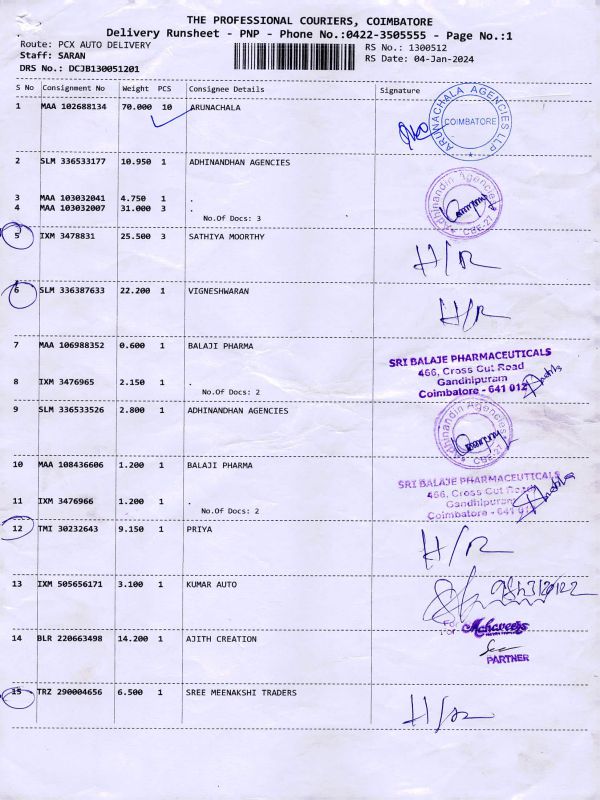 THE PROFESSIONAL COURIERS, COIMBATORE
Delivery Runsheet - PNP - Phone No.:0422-3505555 - Page No.:1
Route: PCX AUTO DELIVERY
RS No.: 1300512
Staff: SARAN
RS Date: 04-Jan-2024
DRS No.: DCJB130051201
S No Consignment No Weight PCS Consignee Details Signature
1 MAA 102688134 70.000 10 ARUNACHALA
ARUNACHALA AGENCIES LLP
COIMBATORE
2 SLM 336533177 10.950 1 ADHINANDHAN AGENCIES
3 MAA 103032041 4.750 1 .
4 MAA 103032007 31.000 3 .
No.Of Docs: 3
Adhinandin Agencies
CBE-27
5 IXM 3478831 25.500 3 SATHIYA MOORTHY
H/R
6 SLM 336387633 22.200 1 VIGNESHWARAN
H/R
7 MAA 106988352 0.600 1 BALAJI PHARMA
SRI BALAJE PHARMACEUTICALS
466, Cross Cut Road
Gandhipuram
Coimbatore - 641 012
8 IXM 3476965 2.150 1 .
No.Of Docs: 2
9 SLM 336533526 2.800 1 ADHINANDHAN AGENCIES
Adhinandin Agencies
CBE-27
10 MAA 108436606 1.200 1 BALAJI PHARMA
SRI BALAJE PHARMACEUTICALS
466, Cross Cut Road
Gandhipuram
Coimbatore - 641 0
11 IXM 3476966 1.200 1 .
No.Of Docs: 2
12 TMI 30232643 9.150 1 PRIYA
H/R
13 IXM 505656171 3.100 1 KUMAR AUTO
14 BLR 220663498 14.200 1 AJITH CREATION
For Mahaveers
PARTNER
15 TRZ 290004656 6.500 1 SREE MEENAKSHI TRADERS
H/R